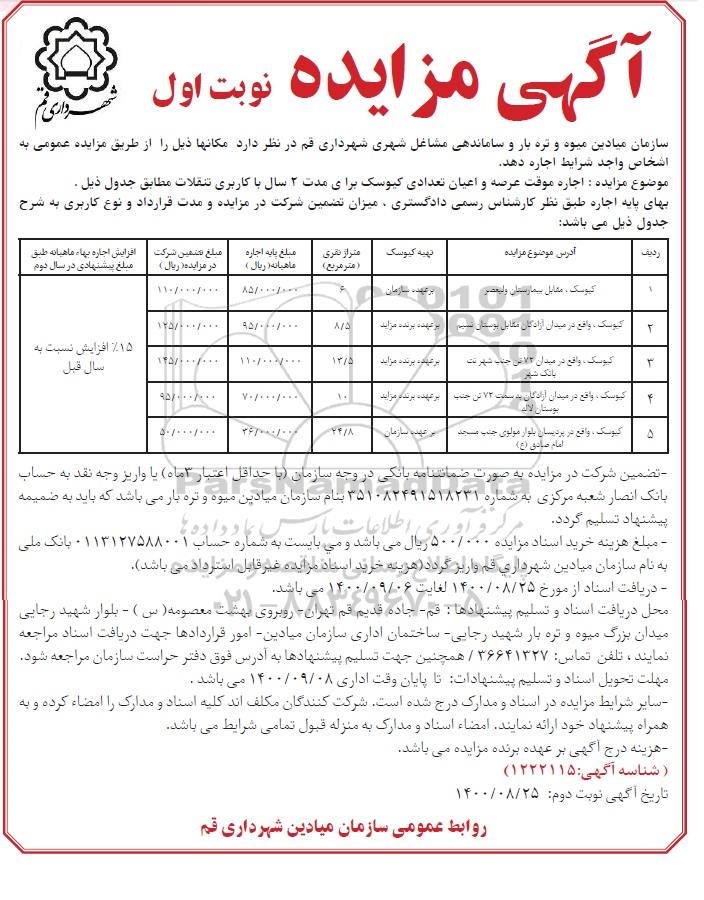 آگهی مزایده نوبت اول
شهرداری قم
سازمان میادین میوه و تره بار و ساماندهی مشاغل شهری شهرداری قم در نظر دارد مکانها ذیل را از طریق مزایده عمومی به
اشخاص واجد شرایط اجاره دهد.
موضوع مزایده : اجاره موقت عرصه و اعیان تعدادی کیوسک برا ی مدت ۲ سال با کاربری تنقلات مطابق جدول ذیل .
بهای پایه اجاره طبق نظر کارشناس رسمی دادگستری ، میزان تضمین شرکت در مزایده و مدت قرارداد و نوع کاربری به شرح
جدول ذیل می باشد:
ردیف | آدرس موضوع مزایده | تهیه کیوسک | متراژ تقری (مترمربع) | مبلغ پایه اجاره ماهیانه(ریال) | مبلغ تضمین شرکت در مزایده(ریال) | افزایش اجاره بهاء ماهیانه طبق مبلغ پیشنهادی در سال دوم
۱ | کیوسک ، مقابل بیمارستان ولیعصر | برعهده سازمان | ۶ | ۸۵/۰۰۰/۰۰۰ | ۱۱۰/۰۰۰/۰۰۰ | ۱۵٪ افزایش نسبت به سال قبل
۲ | کیوسک ، واقع در میدان آزادگان مقابل بوستان نسیم | برعهده برنده مزاید | ۸/۵ | ۹۵/۰۰۰/۰۰۰ | ۱۲۵/۰۰۰/۰۰۰
۳ | کیوسک ، واقع در میدان ۷۲ تن جنب شهر نت بانک شهر | برعهده برنده مزاید | ۱۳/۵ | ۱۱۰/۰۰۰/۰۰۰ | ۱۴۵/۰۰۰/۰۰۰
۴ | کیوسک ، واقع در میدان آزادگان به سمت ۷۲ تن جنب بوستان لاله | برعهده برنده مزاید | ۱۰ | ۷۰/۰۰۰/۰۰۰ | ۹۵/۰۰۰/۰۰۰
۵ | کیوسک ، واقع در پردیسان بلوار مولوی جنب مسجد امام صادق (ع) | بر عهده سازمان | ۲۴/۸ | ۳۶/۰۰۰/۰۰۰ | ۵۰/۰۰۰/۰۰۰
-تضمین شرکت در مزایده به صورت ضمانتنامه بانکی در وجه سازمان (با حداقل اعتبار ۳ماه) یا واریز وجه نقد به حساب
بانک انصار شعبه مرکزی به شماره ۳۵۱۰۸۲۴۹۱۵۱۸۲۳۱ بنام سازمان میادین میوه و تره بار می باشد که باید به ضمیمه
پیشنهاد تسلیم گردد.
- مبلغ هزینه خرید اسناد مزایده ۵۰۰/۰۰۰ ریال می باشد و مي بایست به شماره حساب ۰۱۱۳۱۲۷۵۸۸۰۰۱ بانک ملی
به نام سازمان میادین شهرداري قم واریز گردد(هزینه خرید اسناد مزایده غیرقابل استرداد می باشد).
- دریافت اسناد از مورخ ۱۴۰۰/۰۸/۲۵ لغایت ۱۴۰۰/۰۹/۰۶ می باشد.
محل دریافت اسناد و تسلیم پیشنهادها : قم- جاده قدیم قم تهران- روبروی بهشت معصومه( س ) - بلوار شهید رجایی
میدان بزرگ میوه و تره بار شهید رجایی- ساختمان اداری سازمان میادین- امور قراردادها جهت دریافت اسناد مراجعه
نمایند ، تلفن تماس: ۳۶۶۴۱۳۲۷ / همچنین جهت تسلیم پیشنهادها به آدرس فوق دفتر حراست سازمان مراجعه شود.
مهلت تحویل اسناد و تسلیم پیشنهادات: تا پایان وقت اداری ۱۴۰۰/۰۹/۰۸ می باشد .
-سایر شرایط مزایده در اسناد و مدارک درج شده است. شرکت کنندگان مکلف اند کلیه اسناد و مدارک را امضاء کرده و به
همراه پیشنهاد خود ارائه نمایند. امضاء اسناد و مدارک به منزله قبول تمامی شرایط می باشد.
-هزینه درج آگهی بر عهده برنده مزایده می باشد.
( شناسه آگهی:۱۲۲۲۱۱۵)
تاریخ آگهی نوبت دوم: ۱۴۰۰/۰۸/۲۵
روابط عمومی سازمان میادین شهرداری قم